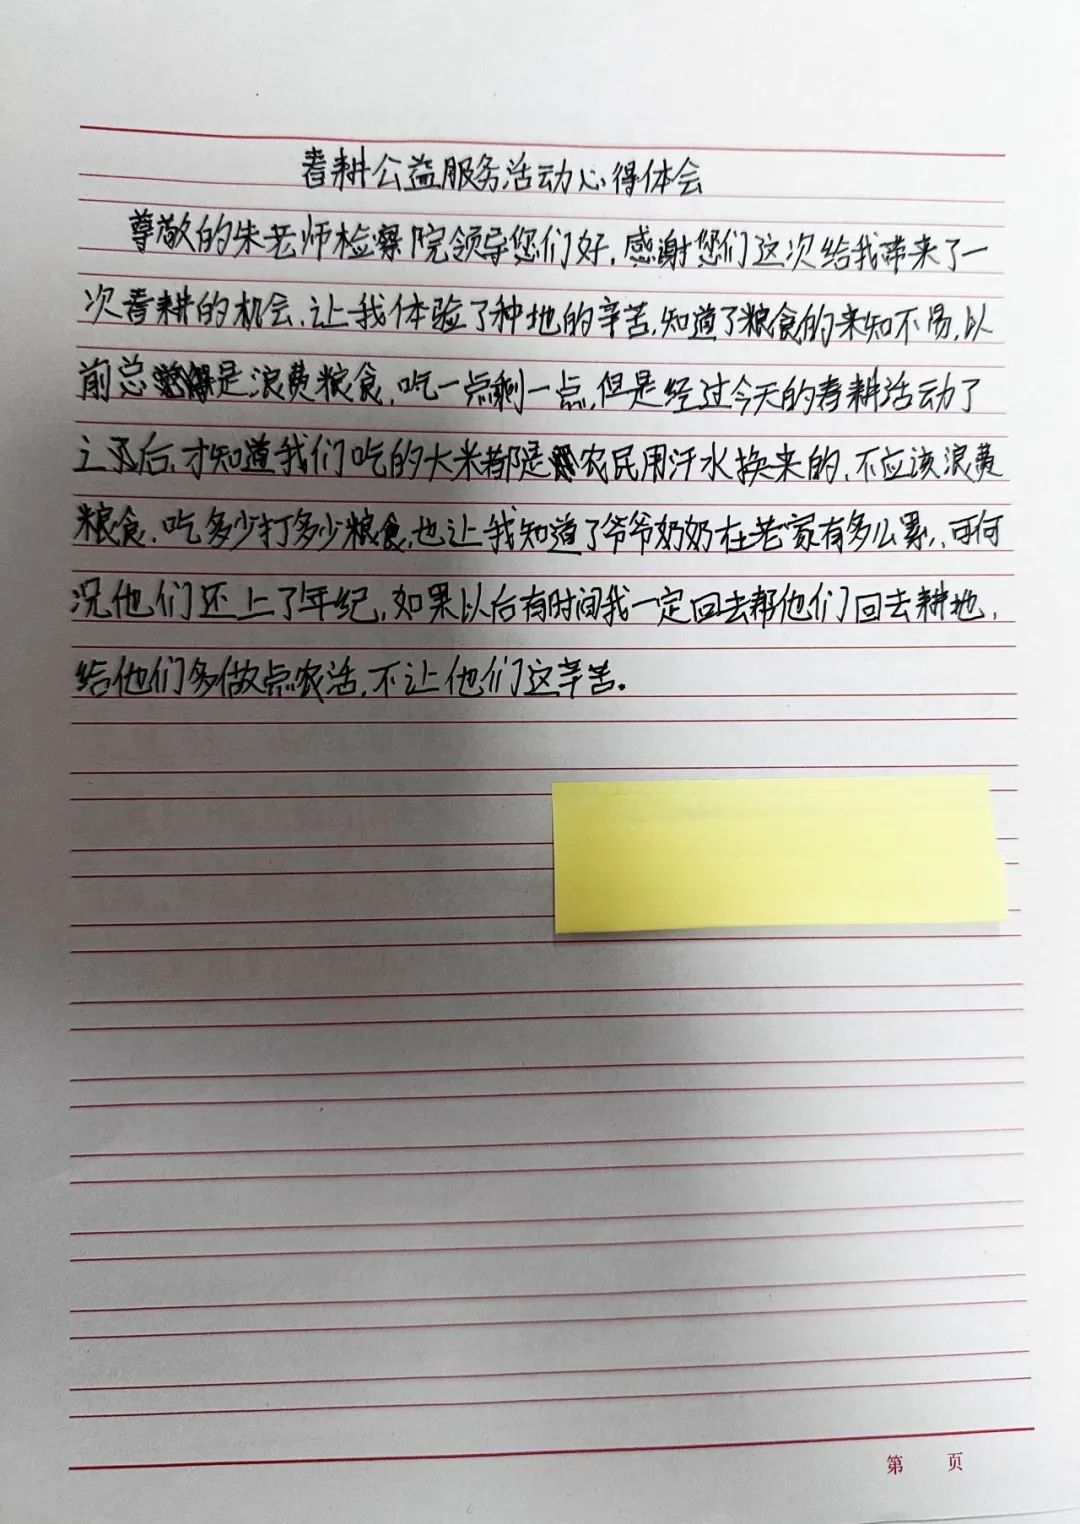 春耕公益服务活动心得体会
尊敬的朱老师检察院领导您们好,感谢您们这次给我带来了一
次春耕的机会,让我体验了种地的辛苦,知道了粮食的来知不易,以
前总是浪费粮食,吃一点剩一点,但是经过今天的春耕活动了
之后,才知道我们吃的大米都是农民用汗水换来的,不应该浪费
粮食,吃多少打多少粮食,也让我知道了爷爷奶奶在老家有多么累,,可何
况他们还上了年纪,如果以后有时间我一定回去帮他们回去耕地,
给他们多做点农活,不让他们这辛苦.
第 页